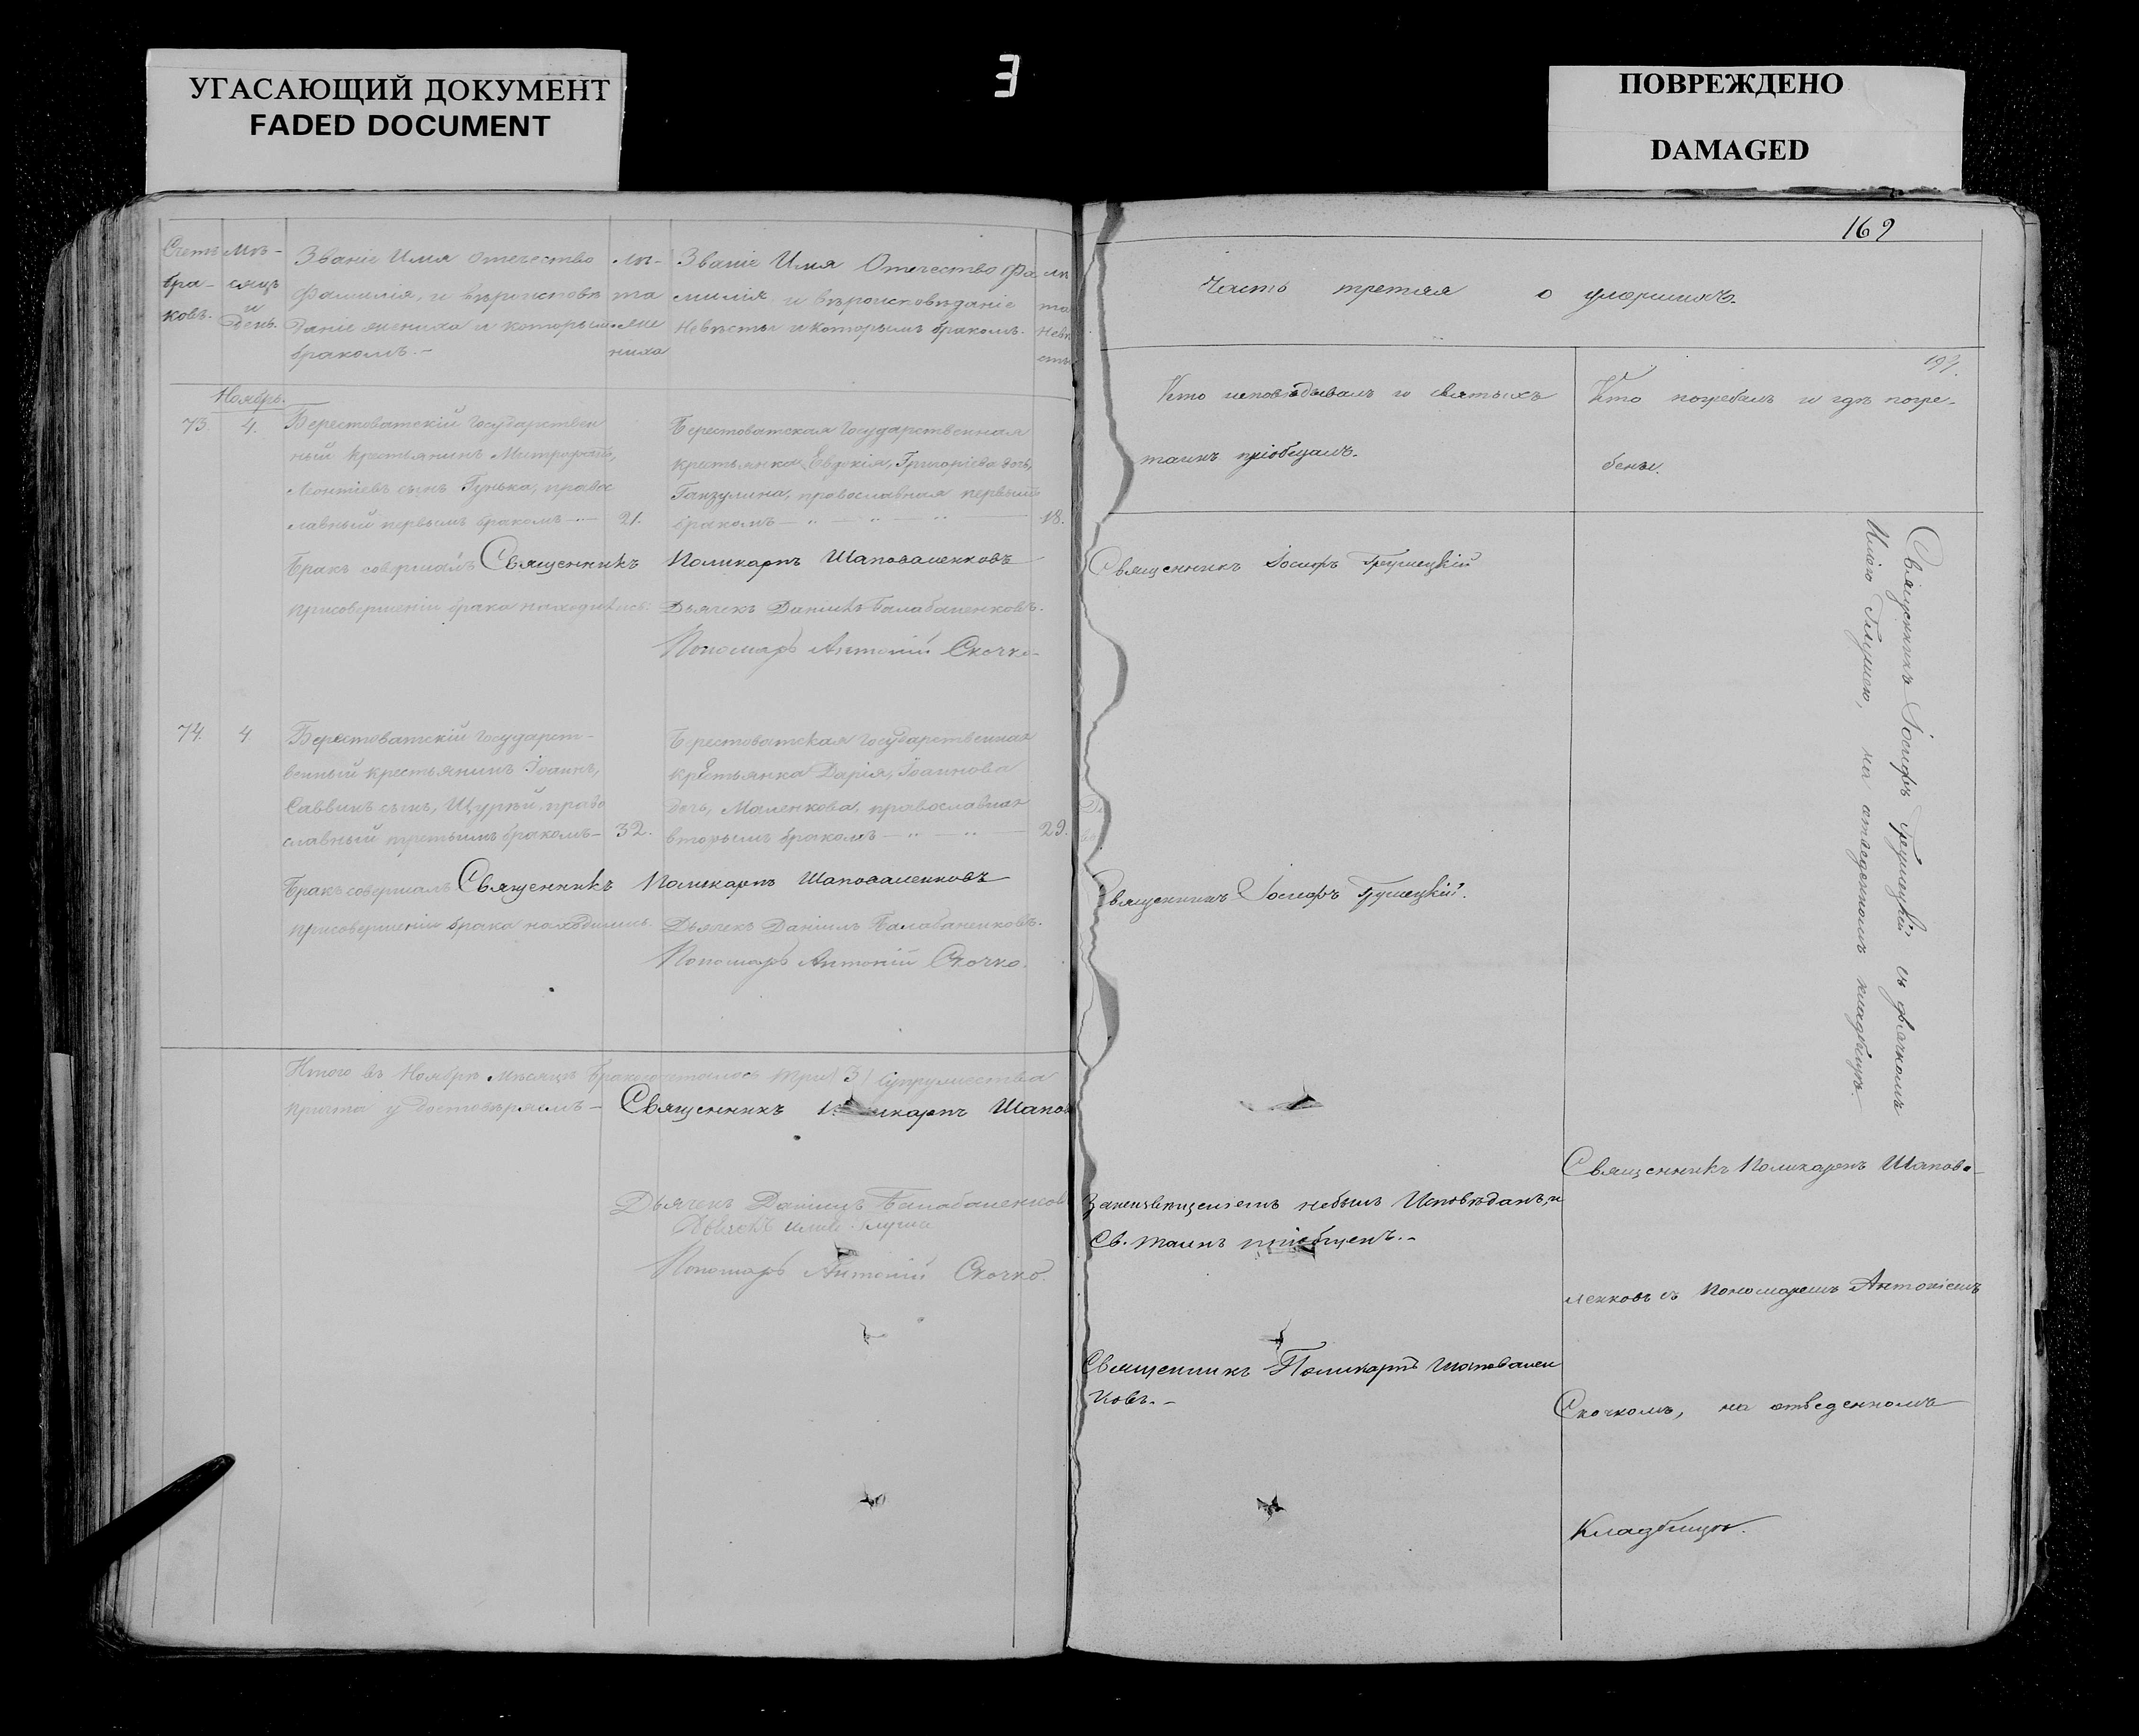 УГАСАЮЩИЙ ДОКУМЕНТ
FADED DOCUMENT
3
ПОВРЕЖДЕНО
DAMAGED
Счетъ бра- ковъ.
Мѣ- сяцъ и день.
Званіе Имя Отечество
Фамилія, и вѣроисповѣ
даніе жениха и которымъ
бракомъ.-
лѣ-
та
же
ниха
Званіе Имя Отечество Фа
милія, и вѣроисповѣданіе
Невѣсты и которымъ бракомъ.
лѣ
та
Невѣ
сты
Ноябрь.
73. 4.
Берестоватскій Государствен
ный крестьянинъ Митрофанъ,
Леонтіевъ сынъ Гунька, право
славный первымъ бракомъ 21.
Берестоватская Государственная
крестьянка Григоріева дочь,
православная первымъ
бракомъ 18.
Бракъ совершалъ Священникъ Поликарпъ Шаповаленковъ
присовершеніи брака находились: Дьячекъ Даніилъ Балабаненковъ.
Пономарь Антоній Скочко
74. 4
Берестоватскій Государст-
венный крестьянинъ Іоаннъ,
Саввинъ сынъ, право
славный третьимъ бракомъ 32.
Берестоватская Государственная
крестьянка Дарія, Іоаннова
дочь, Маленкова, православная
вторымъ бракомъ 29.
Бракъ совершалъ Священникъ Поликарпъ Шаповаленковъ
присовершеніи брака находились Дьячекъ Даніилъ Балабаненковъ.
Пономарь Антоній Скочко.
Итого въ Ноябрѣ Мѣсяцѣ бракосочеталось три (3) супружества
причта удостовѣряемъ Священникъ Шапов
Дьячекъ Даніилъ Балабаненков
Дьячокъ
Пономарь Антоній Скочко.
169
Часть третяя о умершихъ.
194.
Кто исповѣдывалъ и святыхъ
таинъ пріобщалъ.
Кто погребалъ и гдѣ погре-
бены.
Священникъ Іосифъ Грушецкій
Священникъ Іосифъ Грушецкій.
Священникъ Іосифъ Грушецкій съ дьячкомъ
на отведенномъ кладбищѣ.
небылъ Исповѣданъ, и
Св. таинъ пріобщенъ.
Священникъ Поликарпъ Шаповален
ковъ.-
Священникъ Поликарпъ Шапова-
ленковъ съ пономаремъ Антоніемъ
Скочкомъ, на отведенномъ
Кладбищѣ.